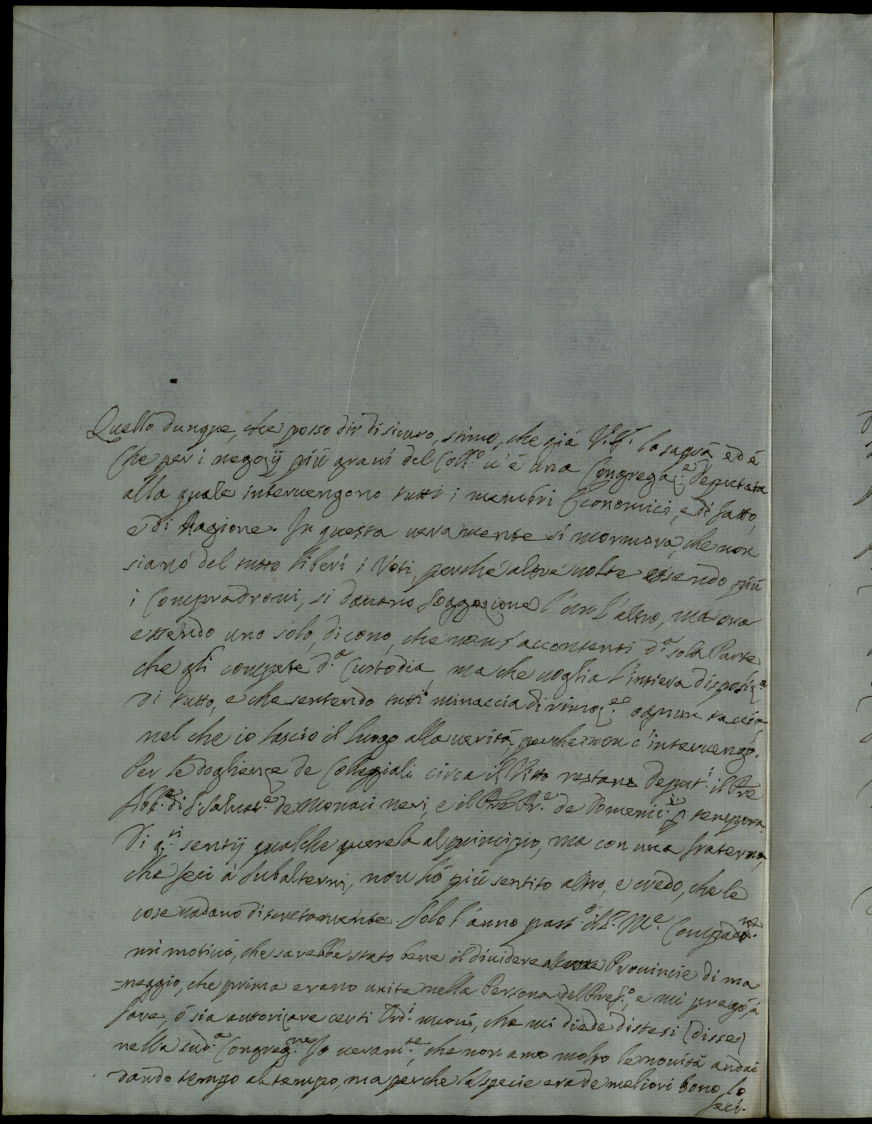 Quello dunque, che posso dir di sicuro, stimo, che già V.S. la saprà ed è
Che per i negozij più gravi del Coll.o v'è una Congrega.e deputata
alla quale intervengono tutti i membri Economici, e di fatto,
e di Ragione. In questa veramente si mormora, che non
siano del tutto liberi i Voti, perche altre volte essendo più
i Compadroni, si davano soggezione l'un l'altro, ma ora
essendo uno solo, dicono, che non s'accontenti d.a sola Parte
che gli compete d.a Custodia, ma che voglia l'intiera disposiz.e
di tutto, e che sentendo tutti minaccia di ognun taccia
nel che io lascio il luogo alla verità, perche non c'intervengo.
Per le doglienze de Collegiali circa il Vitto restano deput.i il Pre
Abb.e di S. Salvat.e de Monaci neri, e il Pre Pr.e de Domenic.ni p tempora.
Di q.ti sentij qualche querela al principio, ma con una fraterna,
che feci à subalterni, non hò più sentito altro, e credo, che le
cose vadano discretamente. Solo l'anno pass.o il S. M.e
mi motivò, che sarebbe stato bene il dividere alcune Provincie di ma
=neggio, che prima erano unite nella Persona del Pref.o, e mi pregò, à
fare, ò sia autorizare certi Ord.i nuovi, che mi diede distesi (disse)
nella sud.a Congreg.ne Io veram.te, che non amo molto le novità andai
dando tempo al tempo, ma perche la specie era de meliori bono, lo
feci.